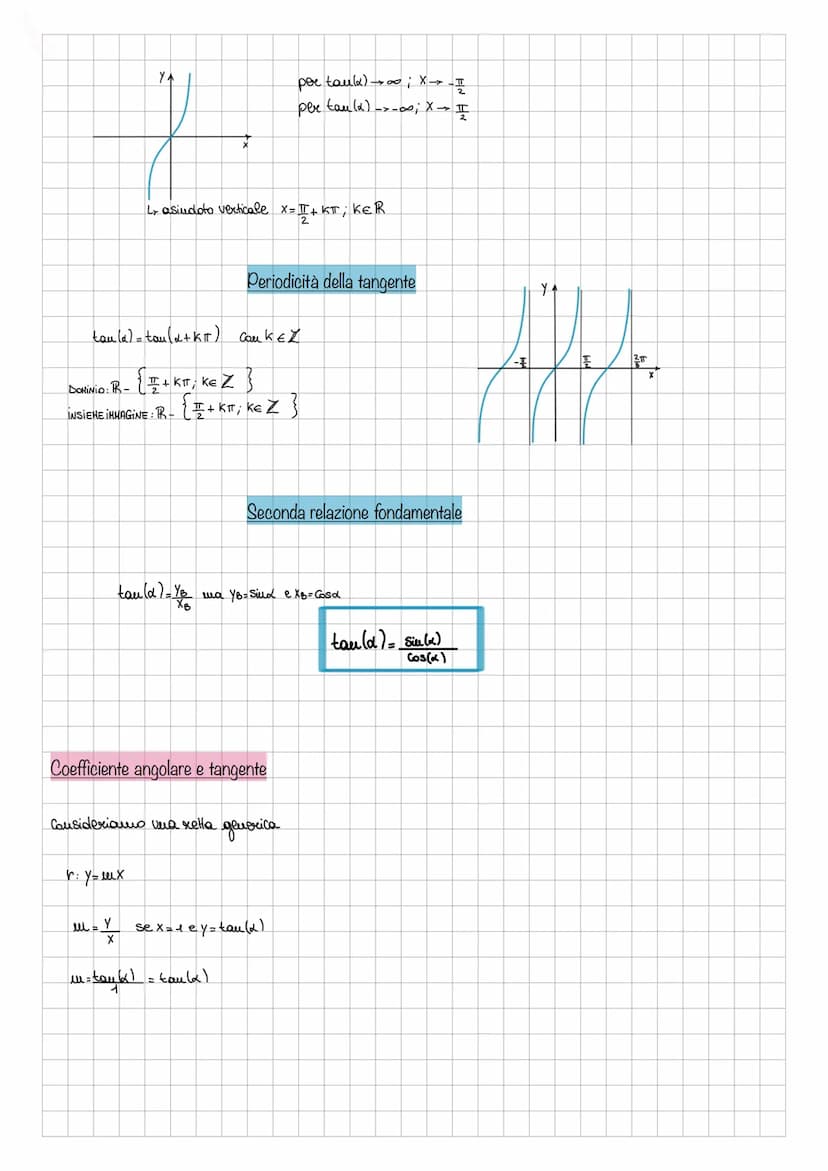 y
x
per tan(α)→∞; x→-π/2
per tan(α)->-∞; x→π/2
↳ asindoto verticale x=π/2+kπ; k∈ℝ
Periodicità della tangente
tan(α)=tan(α+kπ) con k∈ℤ
DOMINIO: ℝ-{π/2+kπ; k∈ℤ}
INSIEME IMMAGINE: ℝ-{π/2+kπ; k∈ℤ}
y
-π/2
π/2
x
Seconda relazione fondamentale
tan(α)=yB/xB ma yB=sinα e xB=cosα
tan(α)=sin(α)/cos(α)
Coefficiente angolare e tangente
Consideriamo una retta generica
r: y=mx
m=y/x se x=1 e y=tan(α)
m=tan(α)/1=tan(α)